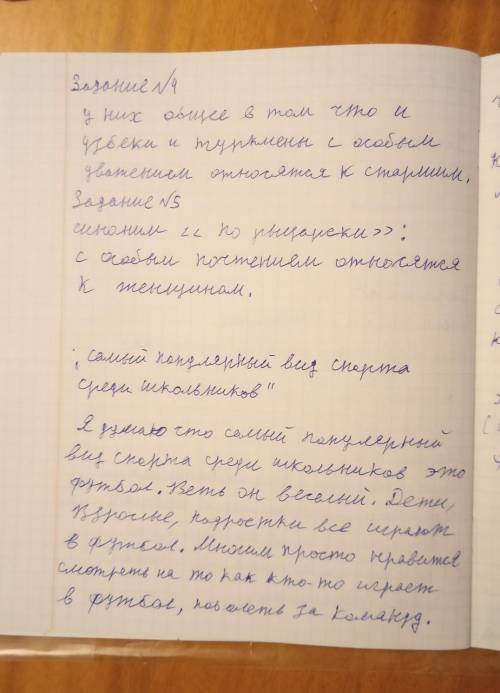 Задание №4
у них общее в том что и
узбеки и туркмены с особым
уважением относятся к старшим.
Задание №5
синоним << по рыцарски>>:
с особым почтением относятся
к женщинам.
„самый популярный вид спорта
среди школьников"
Я думаю что самый популерный
вид спорта среди школьников это
футбол. Веть он веселый. Дети,
взрослые, подростки все играют
в футбол. Многим просто нравится
смотреть на то как кто-то играет
в футбол, поболеть за команду.